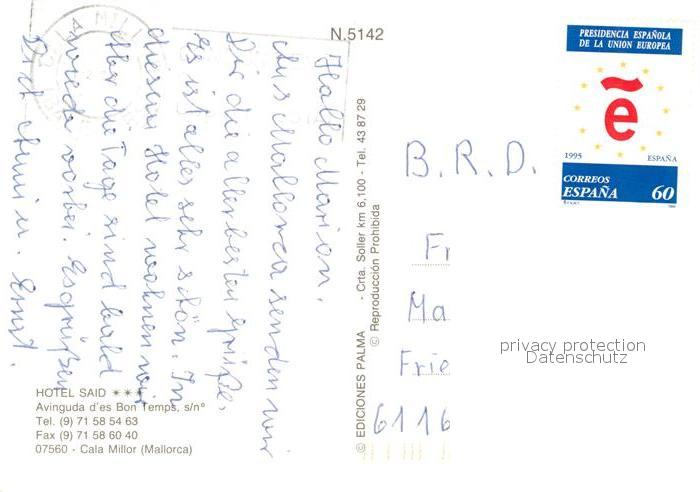 N.5142
MILL
PRESIDENCIA ESPAÑOLA
DE LA UNION EUROPEA
ẽ
1995 ESPAÑA
CORREOS
ESPAÑA 60
Hallo Marion.
Aus Mallorca senden wir
Dir die allerbesten Grüße.
Es ist alles sehr schön. In
diesem Hotel wohnen wir
Aber die Tage sind bald
vorbei. Es grüßen
Dich u. Ernst.
© EDICIONES PALMA - Crta. Soller km 6,100 - Tel. 43 87 29
© Reproducción Prohibida
B.R.D.
Fr
Ma
Frie
6116
privacy protection
Datenschutz
HOTEL SAID ***
Avinguda d'es Bon Temps, s/nº
Tel. (9) 71 58 54 63
Fax (9) 71 58 60 40
07560 - Cala Millor (Mallorca)